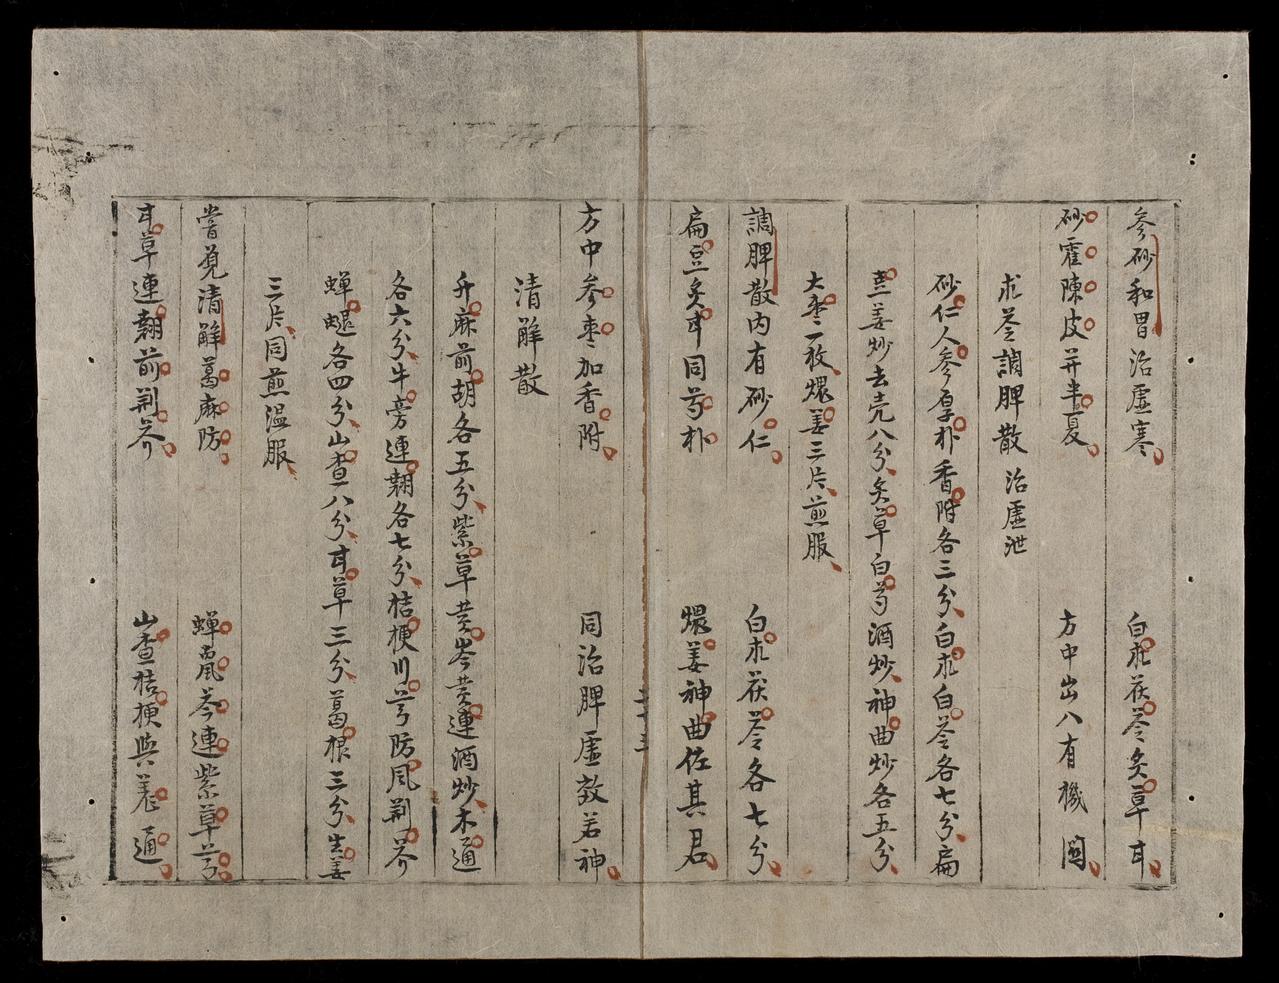 参砂和胃治虚寒 白朮茯苓炙草甘
砂霍陳皮并半夏 方中出八有機関
朮苓調脾散 治虚泄
砂仁人参厚朴香附各三分白朮白苓各七分扁
荳姜炒去壳八分炙草白芍酒炒神曲炒各五分
大枣一枚煨姜三片煎服
調脾散内有砂仁 白朮茯苓各七分
扁豆炙甘同芍朴 煨姜神曲佐其君
二十三
方中参枣加香附 同治脾虚效若神
清解散
升麻前胡各五分紫草黄芩黄連酒炒木通
各六分牛旁連翹各七分桔梗川芎防風荆芥
蝉蜕各四分山查八分甘草三分葛根三分生姜
三片同煎温服
嘗覓清解葛麻防 蝉鼠芩連紫草芎
甘草連翹前荆芥 山查桔梗與姜通